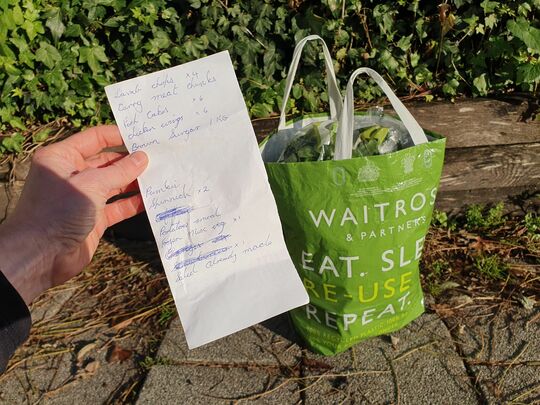 Lamb chops x 4
Curry meat chunks
Fish Cakes x 6
chicken wings x 6
Brown Sugar 1 KG
Pumkin
Spinnich x 2
Potatoes small
x 1
x 1
Salad already made
WAITROS
& PARTNERS
EAT. SLE
RE-USE
REPEAT.